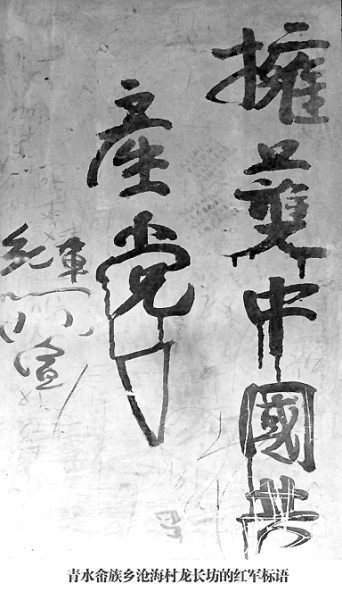 擁護中國共
産党!
紅軍
宣
青水畲族乡沧海村龙长坊的红军标语